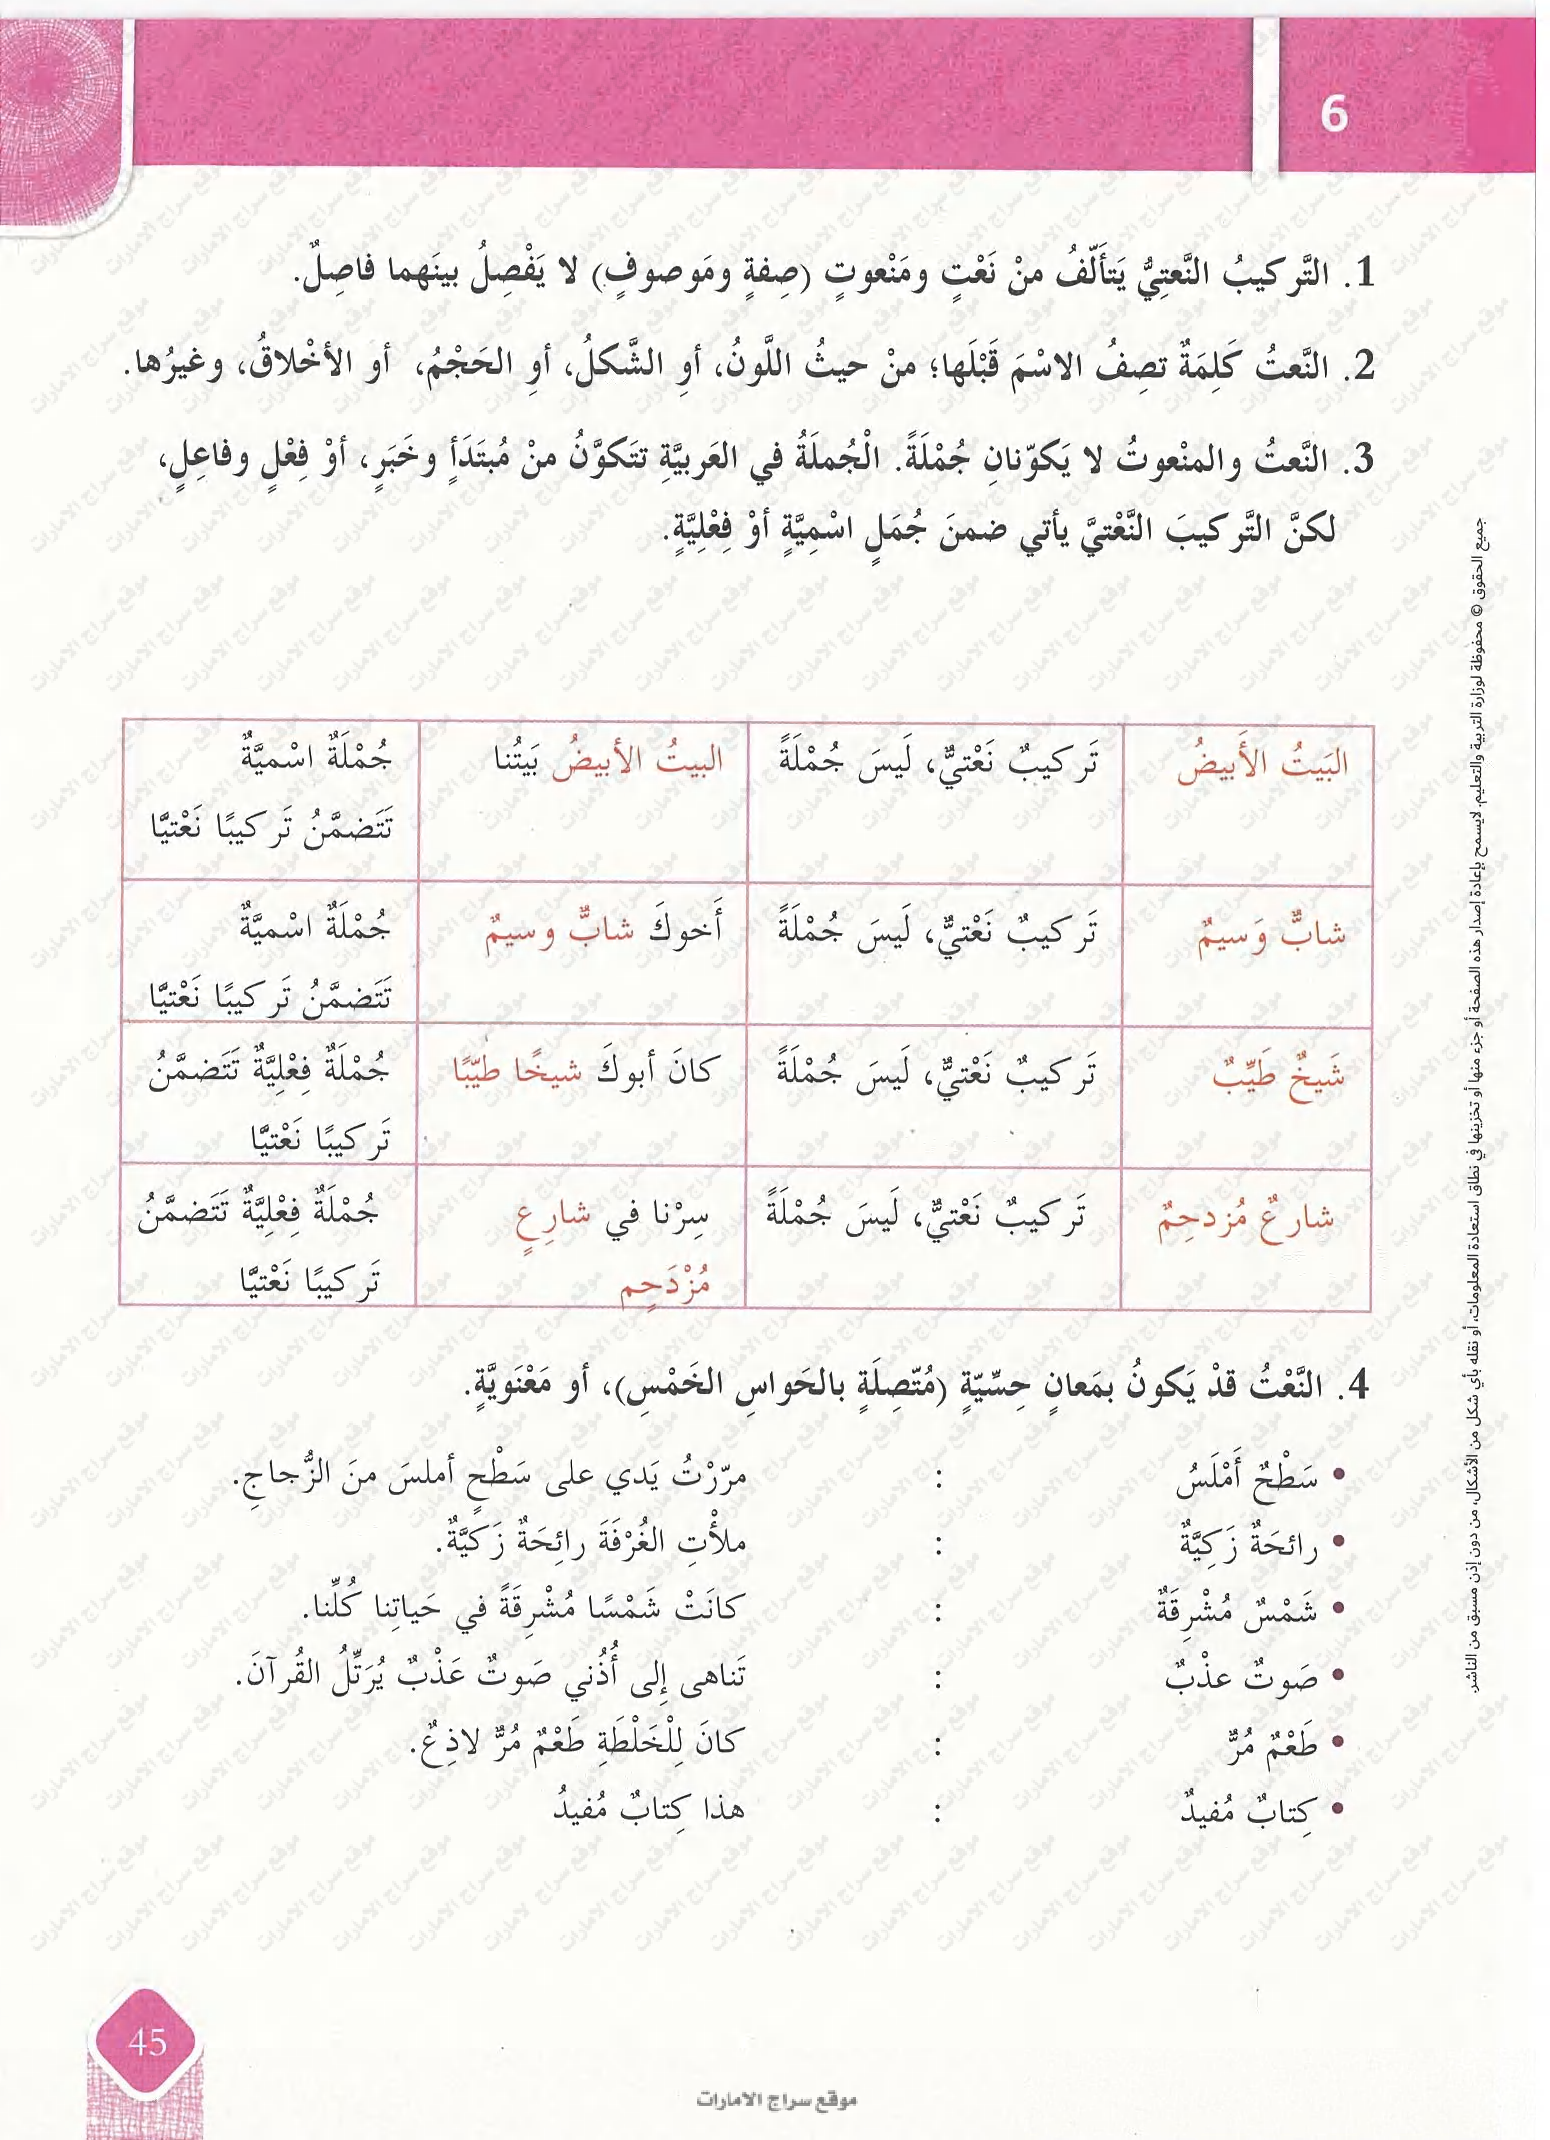 6
1. التَّركيبُ النَّعتِيُّ يَتأَلّفُ منْ نَعْتٍ ومَنْعوتٍ (صِفةٍ ومَوصوفٍ) لا يَفْصِلُ بينَهما فاصِلٌ.
2. النَّعتُ كَلِمَةٌ تصِفُ الاسْمَ قَبْلَها؛ منْ حيثُ اللَّونُ، أوِ الشَّكلُ، أوِ الحَجْمُ، أو الأخْلاقُ، وغيرُها.
3. النَّعتُ والمنْعوتُ لا يَكوّنانِ جُمْلَةً. الْجُملَةُ في العَربيَّةِ تتَكوَّنُ منْ مُبتَدَأٍ وخَبَرٍ، أوْ فِعْلٍ وفاعِلٍ،
لكنَّ التَّركيبَ النَّعْتيَّ يأتي ضمنَ جُمَلٍ اسْمِيَّةٍ أوْ فِعْلِيَّةٍ.
البَيتُ الأَبيضُ تَركيبٌ نَعْتيٌّ، لَيسَ جُمْلَةً البيتُ الأبيضُ بَيتُنا جُمْلَةٌ اسْميَّةٌ
تَتَضمَّنُ تَركيبًا نَعْتيًّا
شابٌّ وَسيمٌ تَركيبٌ نَعْتيٌّ، لَيسَ جُمْلَةً أَخوكَ شابٌّ وسيمٌ جُمْلَةٌ اسْميَّةٌ
تَتَضمَّنُ تَركيبًا نَعْتيًّا
شَيخٌ طَيِّبٌ تَركيبٌ نَعْتيٌّ، لَيسَ جُمْلَةً كانَ أبوكَ شيخًا طيّبًا جُمْلَةٌ فِعْلِيَّةٌ تَتَضمَّنُ
تَركيبًا نَعْتيًّا
شارعٌ مُزدحِمٌ تَركيبٌ نَعْتيٌّ، لَيسَ جُمْلَةً سِرْنا في شارِعٍ جُمْلَةٌ فِعْلِيَّةٌ تَتَضمَّنُ
مُزْدَحِمٍ تَركيبًا نَعْتيًّا
4. النَّعْتُ قدْ يَكونُ بمَعانٍ حِسِّيّةٍ (مُتّصِلَةٍ بالحَواسِ الخَمْسِ)، أو مَعْنَويَّةٍ.
• سَطْحٌ أَمْلَسُ : مرّرْتُ يَدي على سَطْحٍ أملسَ منَ الزُّجاجِ.
• رائحَةٌ زَكِيَّةٌ : ملأْتِ الغُرْفَةَ رائِحَةٌ زَكيَّةٌ.
• شَمْسٌ مُشْرِقَةٌ : كانَتْ شَمْسًا مُشْرِقَةً في حَياتِنا كُلِّنا.
• صَوتٌ عذْبٌ : تَناهى إِلى أُذُني صَوتٌ عَذْبٌ يُرَتِّلُ القُرآنَ.
• طَعْمٌ مُرٌّ : كانَ لِلْخَلْطَةِ طَعْمٌ مُرٌّ لاذِعٌ.
• كِتابٌ مُفيدٌ : هذا كِتابٌ مُفيدُ
جميع الحقوق © محفوظة لوزارة التربية والتعليم. لايسمح بإعادة إصدار هذه الصفحة أو جزء منها أو تخزينها في نطاق استعادة المعلومات، أو نقله بأي شكل من الأشكال، من دون إذن مسبق من الناشر.
45
موقع سراج الامارات